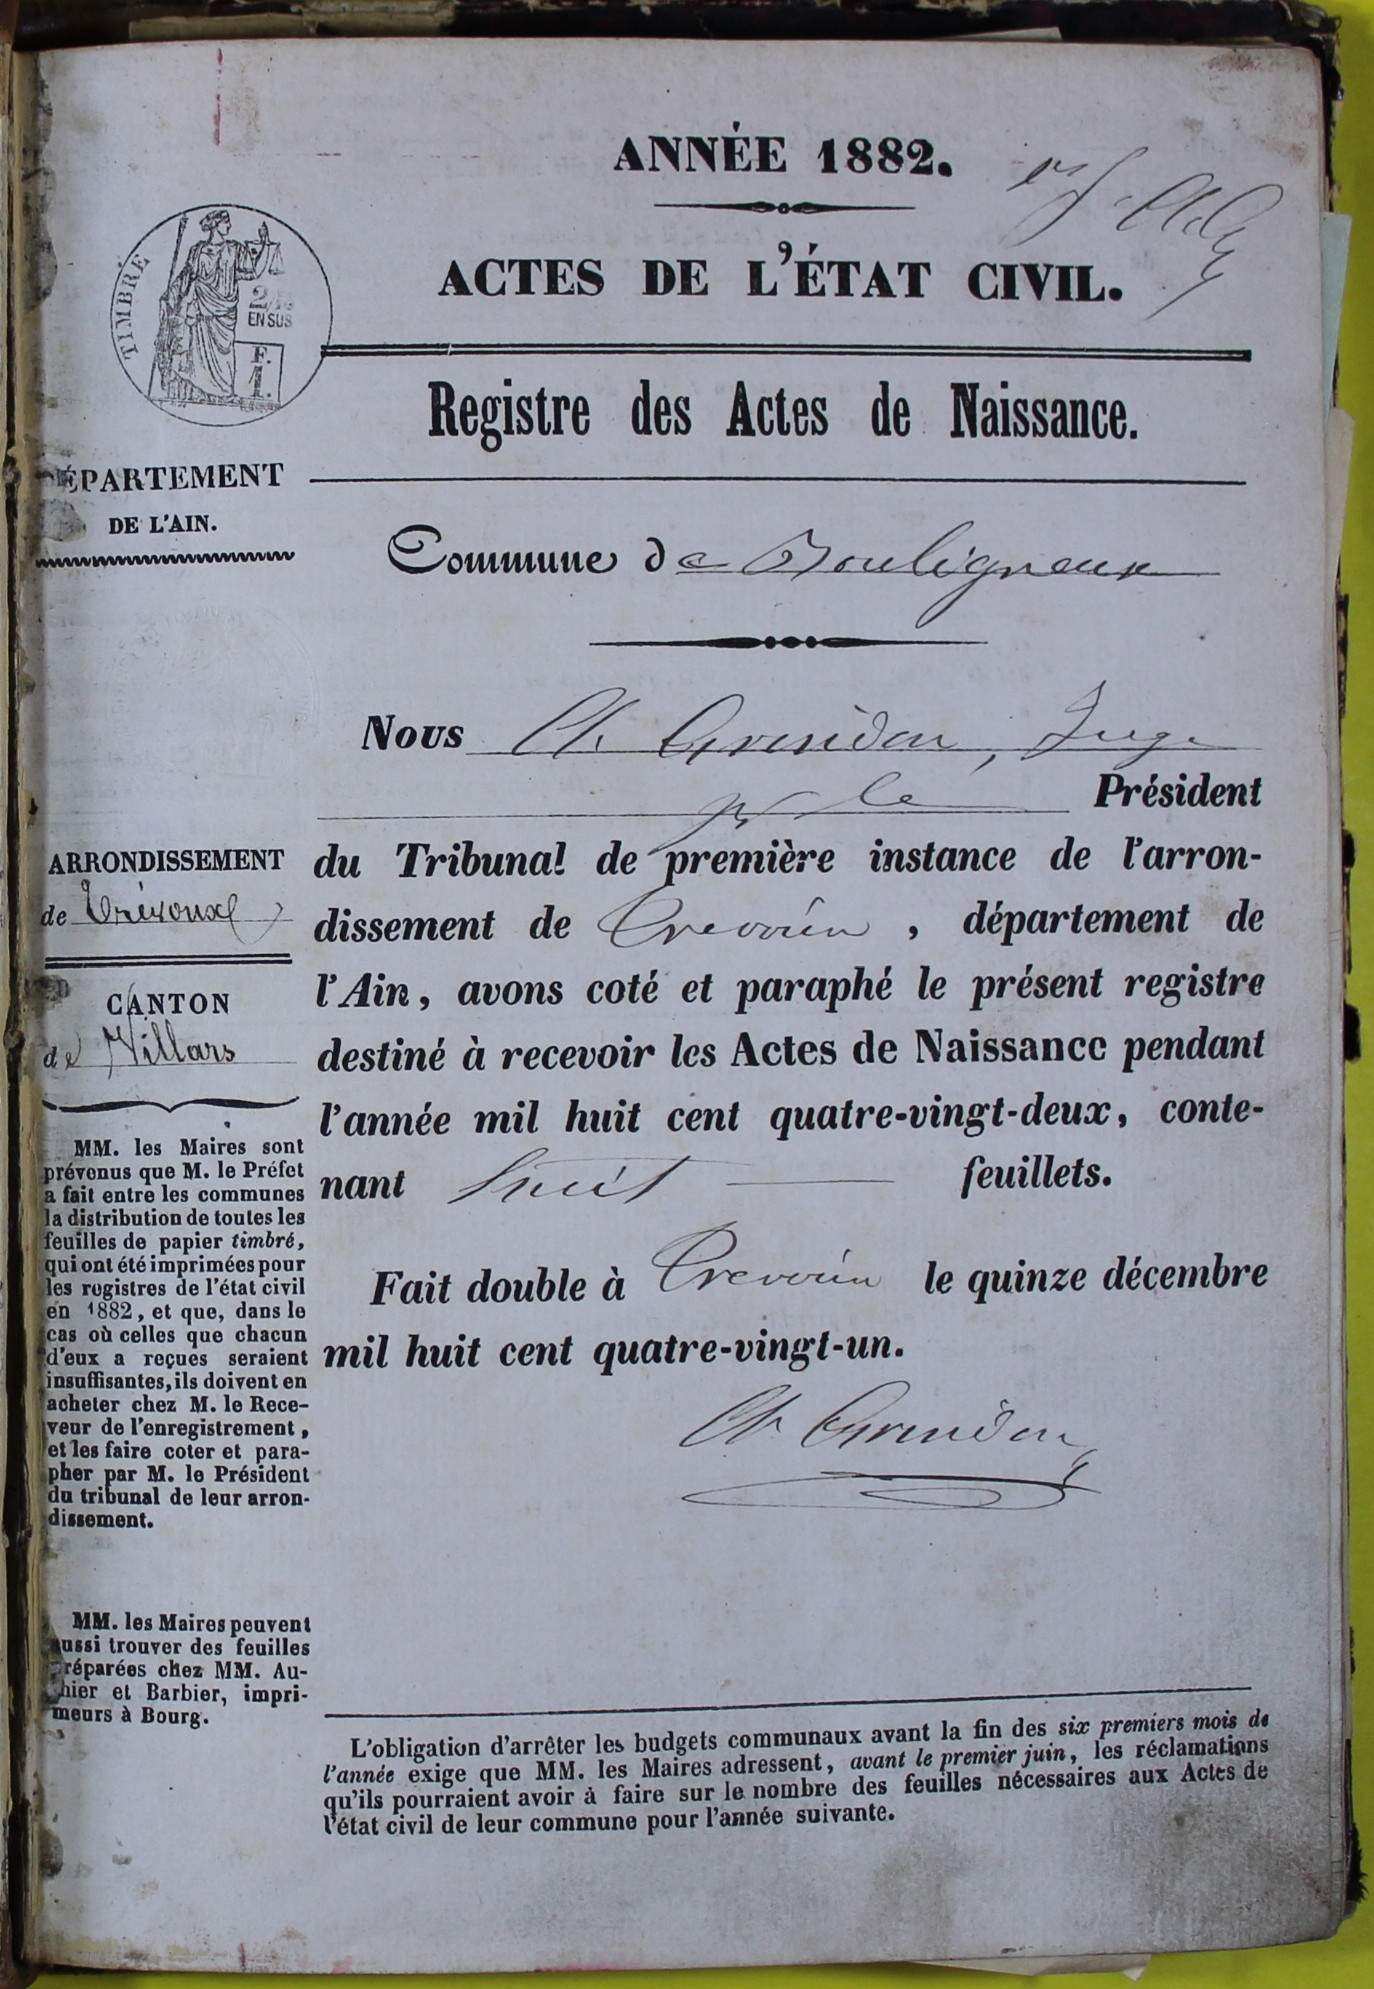 ANNÉE 1882.
ACTES DE L'ÉTAT CIVIL.
TIMBRE
2/10
EN SUS
F.
1.
Registre des Actes de Naissance.
DÉPARTEMENT
DE L'AIN.
Commune de Bouligneux
Nous Ch. Grandon, Juge
pr le Président
ARRONDISSEMENT
de Trévoux
CANTON
de Villars
du Tribunal de première instance de l'arron-
dissement de Trevoux, département de
l'Ain, avons coté et paraphé le présent registre
destiné à recevoir les Actes de Naissance pendant
l'année mil huit cent quatre-vingt-deux, conte-
nant huit feuillets.
Fait double à Trevoux le quinze décembre
mil huit cent quatre-vingt-un.
Ch Grandon
MM. les Maires sont
prévenus que M. le Préfet
a fait entre les communes
la distribution de toutes les
feuilles de papier timbré,
qui ont été imprimées pour
les registres de l'état civil
en 1882, et que, dans le
cas où celles que chacun
d'eux a reçues seraient
insuffisantes, ils doivent en
acheter chez M. le Rece-
veur de l'enregistrement,
et les faire coter et para-
pher par M. le Président
du tribunal de leur arron-
dissement.
MM. les Maires peuvent
aussi trouver des feuilles
préparées chez MM. Au-
thier et Barbier, impri-
meurs à Bourg.
L'obligation d'arrêter les budgets communaux avant la fin des six premiers mois de
l'année exige que MM. les Maires adressent, avant le premier juin, les réclamations
qu'ils pourraient avoir à faire sur le nombre des feuilles nécessaires aux Actes de
l'état civil de leur commune pour l'année suivante.